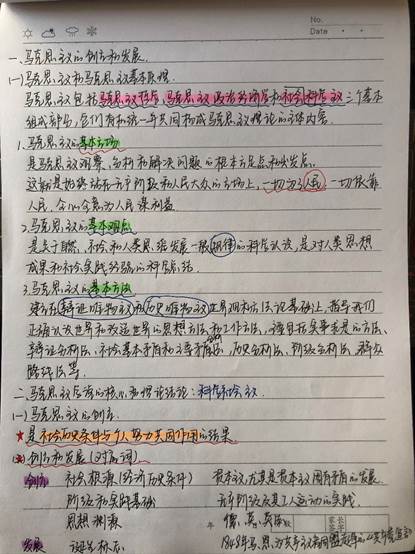 No.
Date
一、马克思主义的创立和发展.
(一)马克思主义和马克思主义基本原理.
马克思主义包括马克思主义哲学、马克思主义政治经济学和社会科学主义三个基本
组成部分,它们有机统一并共同构成马克思主义理论的主体内容.
1.马克思主义的基本立场
是马克思主义观察、分析和解决问题的根本立足点和出发点.
这就是始终站在无产阶级和人民大众的立场上,一切为了人民,一切依靠
人民,全心全意为人民谋利益
2.马克思主义的基本观点
是关于自然、社会和人类思维发展一般规律的科学认识,是对人类思想
成果和社会实践经验的科学总结.
3.马克思主义的基本方法
建立在辩证唯物主义和历史唯物主义世界观和方法论基础上,指导我们
正确认识世界和改造世界的思想方法和工作方法,
实事求是的方法、
辩证分析法、社会基本矛盾和主要矛盾分析法、历史分析法、阶级分析法、群众
路线法等.
二、马克思主义 的核心 结论:科学社会主义
(一)马克思主义的创立.
★是社会历史条件与个人努力共同作用的结果
创立和发展(对应词)
创立 社会根源(经济历史条件) 资本主义 资本主义固有矛盾的发展.
阶级和实践基础 无产阶级及其工人运动的实践.
思想渊源 德、英、
发展 诞生标志 1848年马、恩